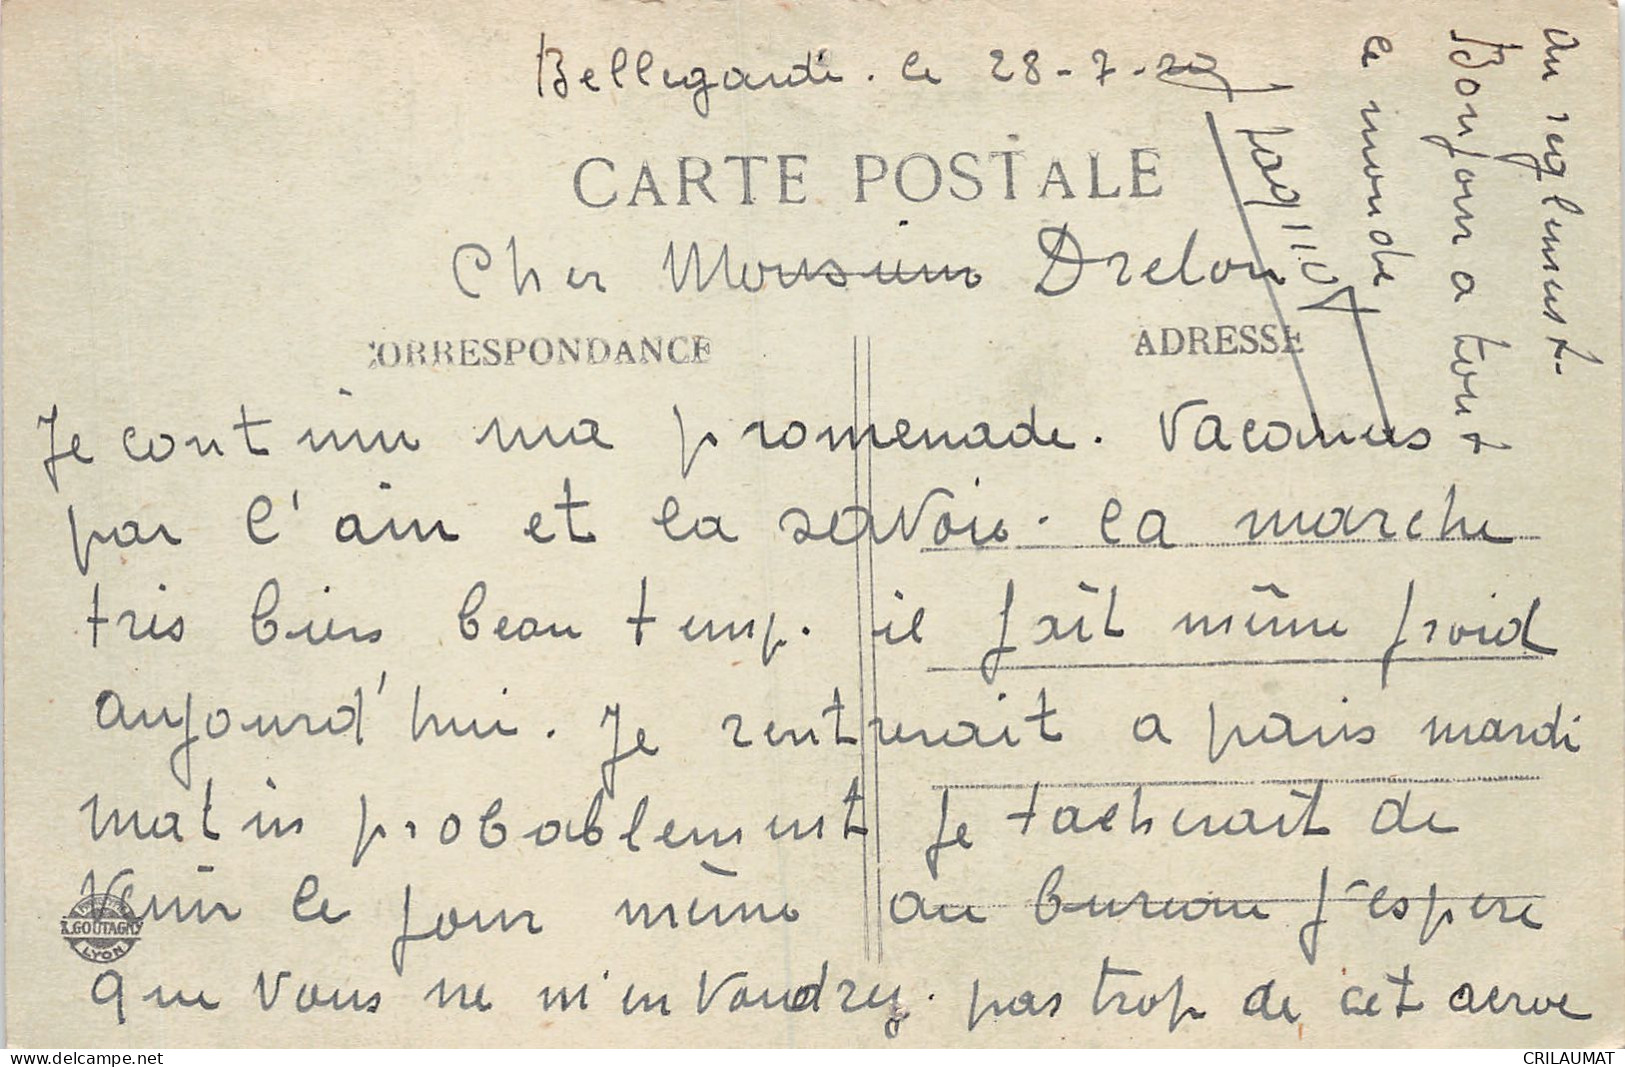 Bellegarde. le 28-7-
CARTE POSTALE
Cher Monsieur Drelon
CORRESPONDANCE
ADRESSE
Je continu ma promenade. Vacances
par l'ain et la savoie. la marche
tres bien beau temp. il fait même froid
aujourd'hui. Je rentrerait a paris mardi
matin probablement Je tacherait de
venir le jour même au bureau J'espere
que vous ne m'en voudrez. pas trop de cet
au reglement.
Bonjour a tout
le monde
GOUTAGNY
LYON
CRILAUMAT